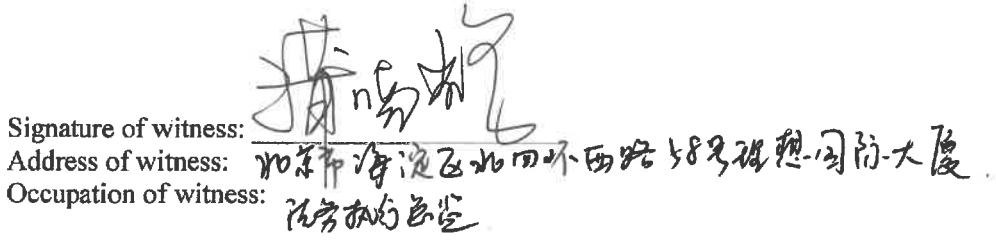 Signature of witness:
Address of witness: 北京市海淀区北四环西路58号理想国际大厦.
Occupation of witness: 法务执行总监